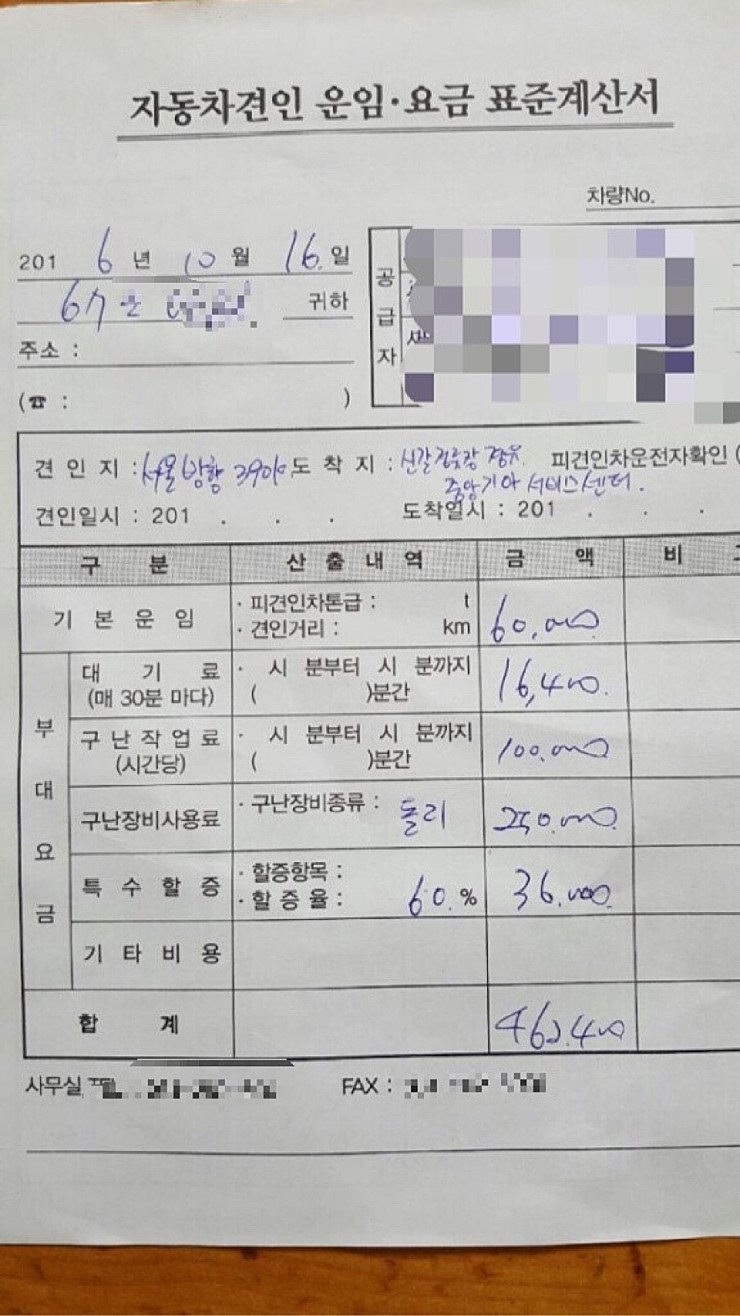 자동차견인 운임·요금 표준계산서
차량No.
2016년 10월 16일
귀하
주소 :
(☎ : )
공급자
견인지 : 서울방향 390k 도착지 : 신갈정류장 경유 피견인차운전자확인 (
중앙기아 서비스센터.
견인일시 : 201 . . . 도착일시 : 201 . . .
구 분 산 출 내 역 금 액 비
기 본 운 임 · 피견인차톤급 : t 60,000
· 견인거리 : km
부대요금
대 기 료 · 시 분부터 시 분까지 16,400.
(매 30분 마다) ( )분간
구난작업료 · 시 분부터 시 분까지 100,000
(시간당) ( )분간
구난장비사용료 · 구난장비종류 : 돌리 250,000
특 수 할 증 · 할증항목 :
· 할 증 율 : 60. % 36,000
기 타 비 용
합 계 462,400
사무실
FAX :